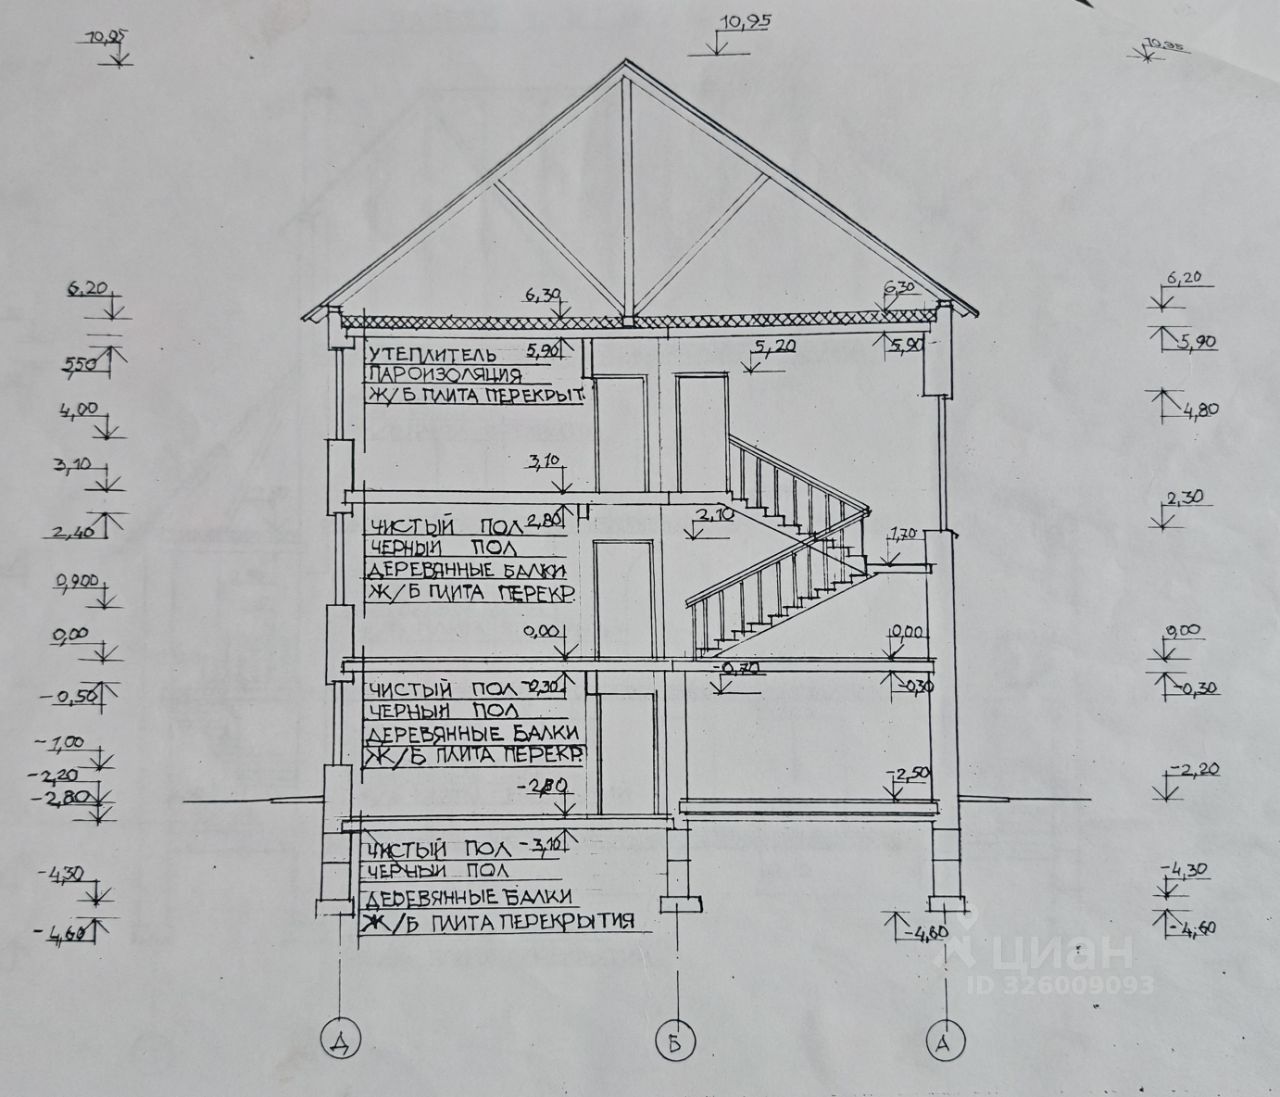 10,95
10,95
10,95
6,20
6,30
6,30
6,20
550
УТЕПЛИТЕЛЬ
5,90
5,20
5,90
5,90
ПАРОИЗОЛЯЦИЯ
Ж/Б ПЛИТА ПЕРЕКРЫТ.
4,00
4,80
3,10
3,10
2,40
ЧИСТЫЙ ПОЛ
2,80
2,10
2,30
ЧЕРНЫЙ ПОЛ
1,70
ДЕРЕВЯННЫЕ БАЛКИ
Ж/Б ПЛИТА ПЕРЕКР.
0,900
0,00
0,00
0,00
0,00
-0,50
ЧИСТЫЙ ПОЛ
-0,30
-0,70
-0,30
-0,30
ЧЕРНЫЙ ПОЛ
ДЕРЕВЯННЫЕ БАЛКИ
Ж/Б ПЛИТА ПЕРЕКР.
-1,00
-2,20
-2,80
-2,80
-2,50
-2,20
ЧИСТЫЙ ПОЛ
-3,10
ЧЕРНЫЙ ПОЛ
ДЕРЕВЯННЫЕ БАЛКИ
Ж/Б ПЛИТА ПЕРЕКРЫТИЯ
-4,30
-4,30
-4,60
-4,60
-4,60
циан
ID 326009093
Д
Б
А